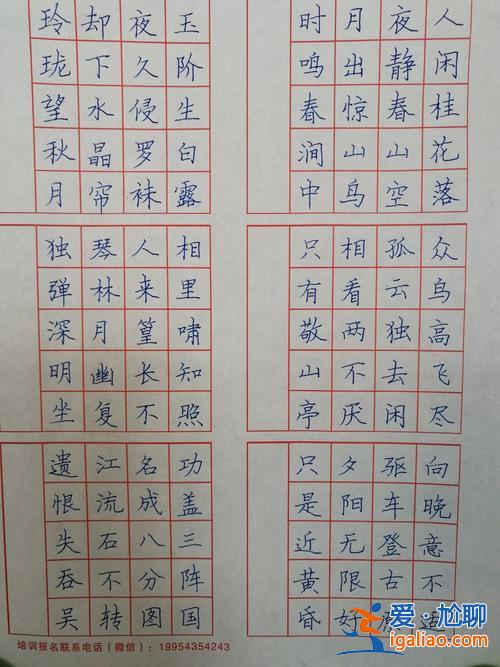 人闲桂花落
夜静春山空
月出惊山鸟
时鸣春涧中
玉阶生白露
夜久侵罗袜
却下水晶帘
玲珑望秋月
众鸟高飞尽
孤云独去闲
相看两不厌
只有敬山亭
相里啸知照
人来篁长不
琴林月幽复
独弹深明坐
向晚意不适
驱车登古原
夕阳无限好
只是近黄昏
功盖三阵国
名成八分图
江流石不转
遗恨失吞吴
培训报名联系电话（微信）：19954354243
爱·尬聊
igaliao.com